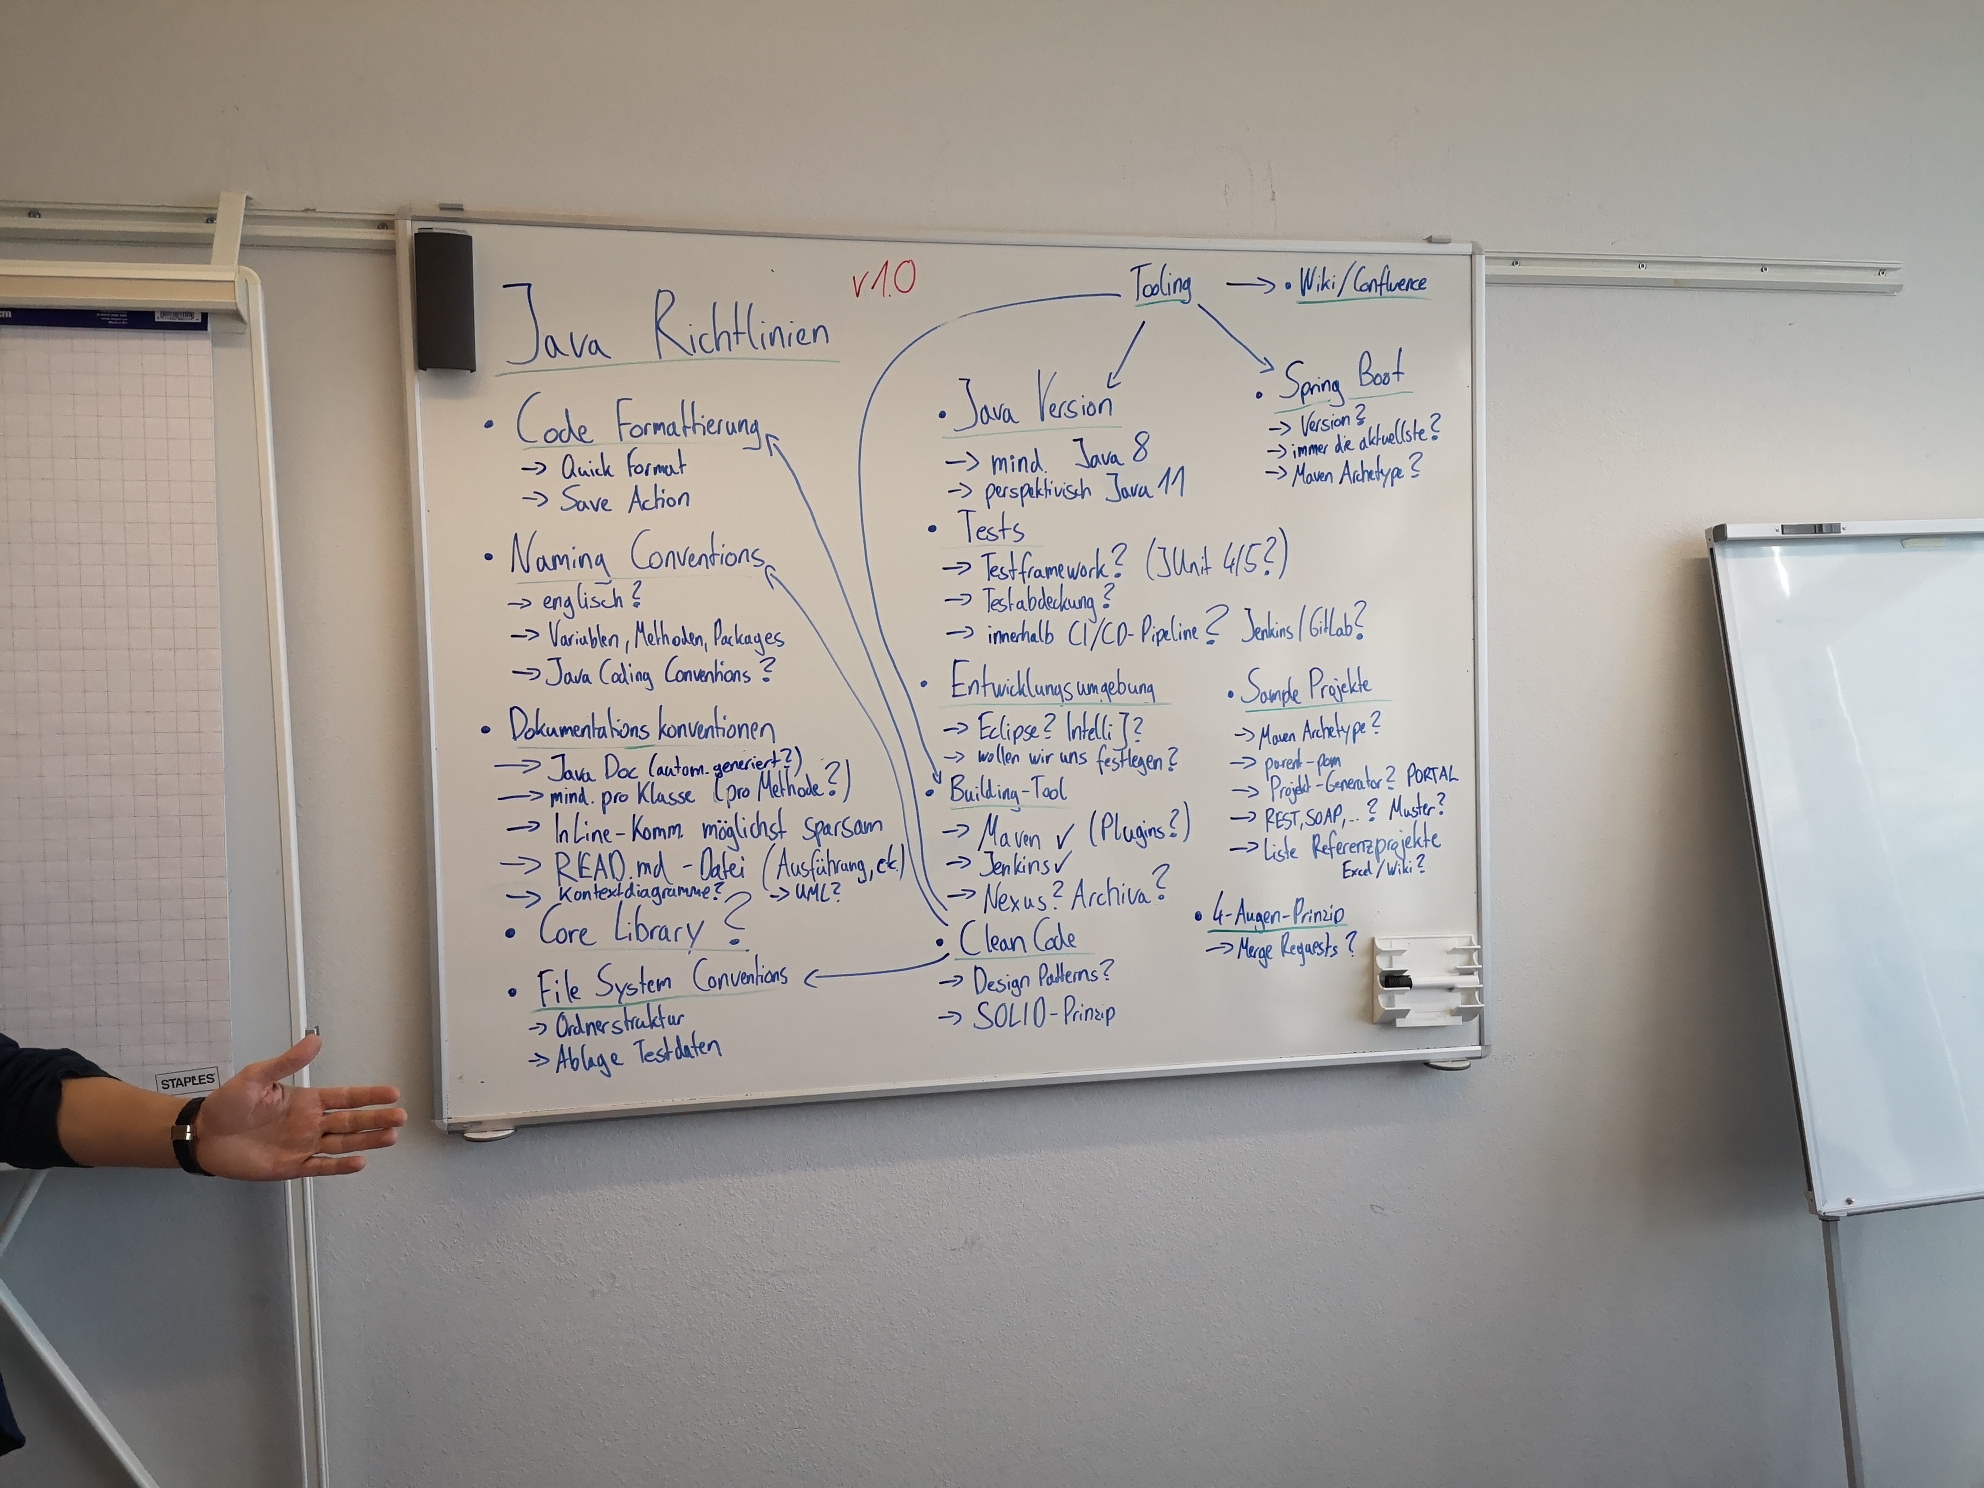 Java Richtlinien
v1.0
• Code Formattierung
→ Quick Format
→ Save Action
• Naming Conventions
→ englisch?
→ Variablen, Methoden, Packages
→ Java Coding Conventions?
• Dokumentationskonventionen
→ Java Doc (autom. generiert?)
→ mind. pro Klasse (pro Methode?)
→ InLine-Komm. möglichst sparsam
→ READ.md - Datei (Ausführung, etc)
→ Kontextdiagramme? → UML?
• Core Library?
• File System Conventions
→ Ordnerstruktur
→ Ablage Testdaten
Tooling → • Wiki/Confluence
• Java Version
→ mind. Java 8
→ perspektivisch Java 11
• Tests
→ Testframework? (JUnit 4/5?)
→ Testabdeckung?
→ innerhalb CI/CD-Pipeline? Jenkins/GitLab?
• Entwicklungsumgebung
→ Eclipse? IntelliJ?
→ wollen wir uns festlegen?
• Building-Tool
→ Maven ✓ (Plugins?)
→ Jenkins ✓
→ Nexus? Archiva?
• Clean Code
→ Design Patterns?
→ SOLID-Prinzip
• Spring Boot
→ Version?
→ immer die aktuellste?
→ Maven Archetype?
• Sample Projekte
→ Maven Archetype?
→ parent-pom
→ Projekt-Generator? PORTAL
→ REST, SOAP, ..? Muster?
→ Liste Referenzprojekte
Excel/Wiki?
• 4-Augen-Prinzip
→ Merge Requests?
STAPLES